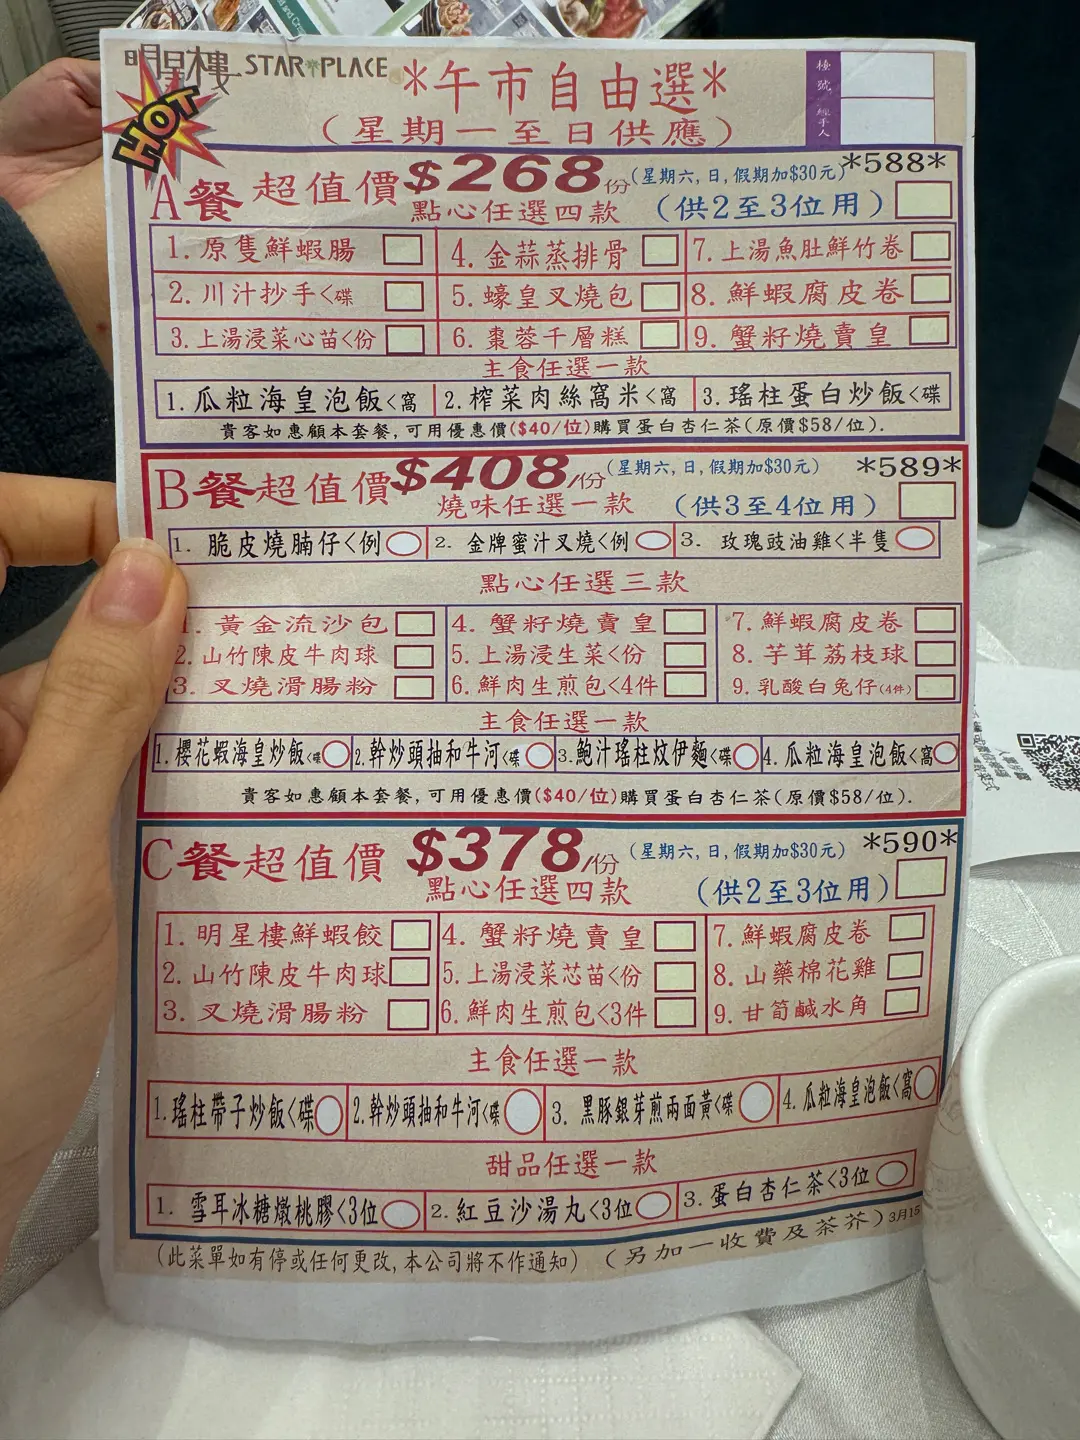 明星樓 STAR PLACE
HOT
*午市自由選*
(星期一至日供應)
檯號
經手人
A餐超值價$268/份(星期六,日,假期加$30元) *588*
點心任選四款 (供2至3位用)
1.原隻鮮蝦腸 4.金蒜蒸排骨 7.上湯魚肚鮮竹卷
2.川汁抄手<碟 5.蠔皇叉燒包 8.鮮蝦腐皮卷
3.上湯浸菜心苗<份 6.棗蓉千層糕 9.蟹籽燒賣皇
主食任選一款
1.瓜粒海皇泡飯<窩 2.榨菜肉絲窩米<窩 3.瑤柱蛋白炒飯<碟
貴客如惠顧本套餐,可用優惠價($40/位)購買蛋白杏仁茶(原價$58/位).
B餐超值價$408/份(星期六,日,假期加$30元) *589*
燒味任選一款 (供3至4位用)
1. 脆皮燒腩仔<例 2. 金牌蜜汁叉燒<例 3. 玫瑰豉油雞<半隻
點心任選三款
1. 黃金流沙包 4. 蟹籽燒賣皇 7.鮮蝦腐皮卷
2.山竹陳皮牛肉球 5.上湯浸生菜<份 8.芋茸荔枝球
3. 叉燒滑腸粉 6.鮮肉生煎包<4件 9.乳酸白兔仔(4件)
主食任選一款
1.櫻花蝦海皇炒飯<碟 2.幹炒頭抽和牛河<碟 3.鮑汁瑤柱炆伊麵<碟 4.瓜粒海皇泡飯<窩
貴客如惠顧本套餐,可用優惠價($40/位)購買蛋白杏仁茶(原價$58/位).
C餐超值價 $378/份 (星期六,日,假期加$30元) *590*
點心任選四款 (供2至3位用)
1. 明星樓鮮蝦餃 4. 蟹籽燒賣皇 7.鮮蝦腐皮卷
2. 山竹陳皮牛肉球 5.上湯浸菜芯苗<份 8.山藥棉花雞
3. 叉燒滑腸粉 6.鮮肉生煎包<3件 9.甘筍鹹水角
主食任選一款
1.瑤柱帶子炒飯<碟 2.幹炒頭抽和牛河<碟 3. 黑豚銀芽煎兩面黃<碟 4.瓜粒海皇泡飯<窩
甜品任選一款
1. 雪耳冰糖燉桃膠<3位 2.紅豆沙湯丸<3位 3.蛋白杏仁茶<3位
(此菜單如有停或任何更改,本公司將不作通知) (另加一收費及茶芥)3月15